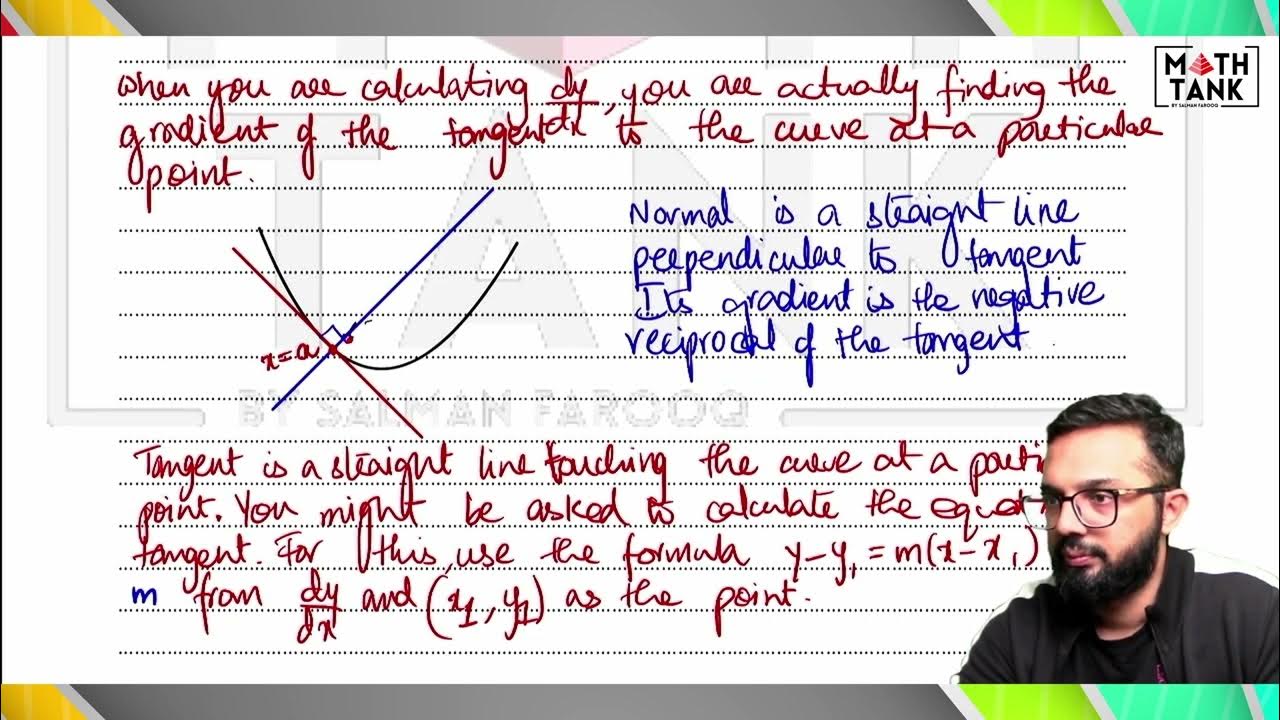 MATH
TANK
BY SALMAN FAROOQ
When you are calculating dy/dx, you are actually finding the
gradient of the tangent to the curve at a particular
point.
Normal is a straight line
perpendicular to tangent
Its gradient is the negative
reciprocal of the tangent.
x=a
TANK
BY SALMAN FAROOQ
Tangent is a straight line touching the curve at a
point. You might be asked to calculate the
tangent. For this, use the formula y-y₁ = m(x-x₁)
m from dy/dx and (x₁, y₁) as the point.